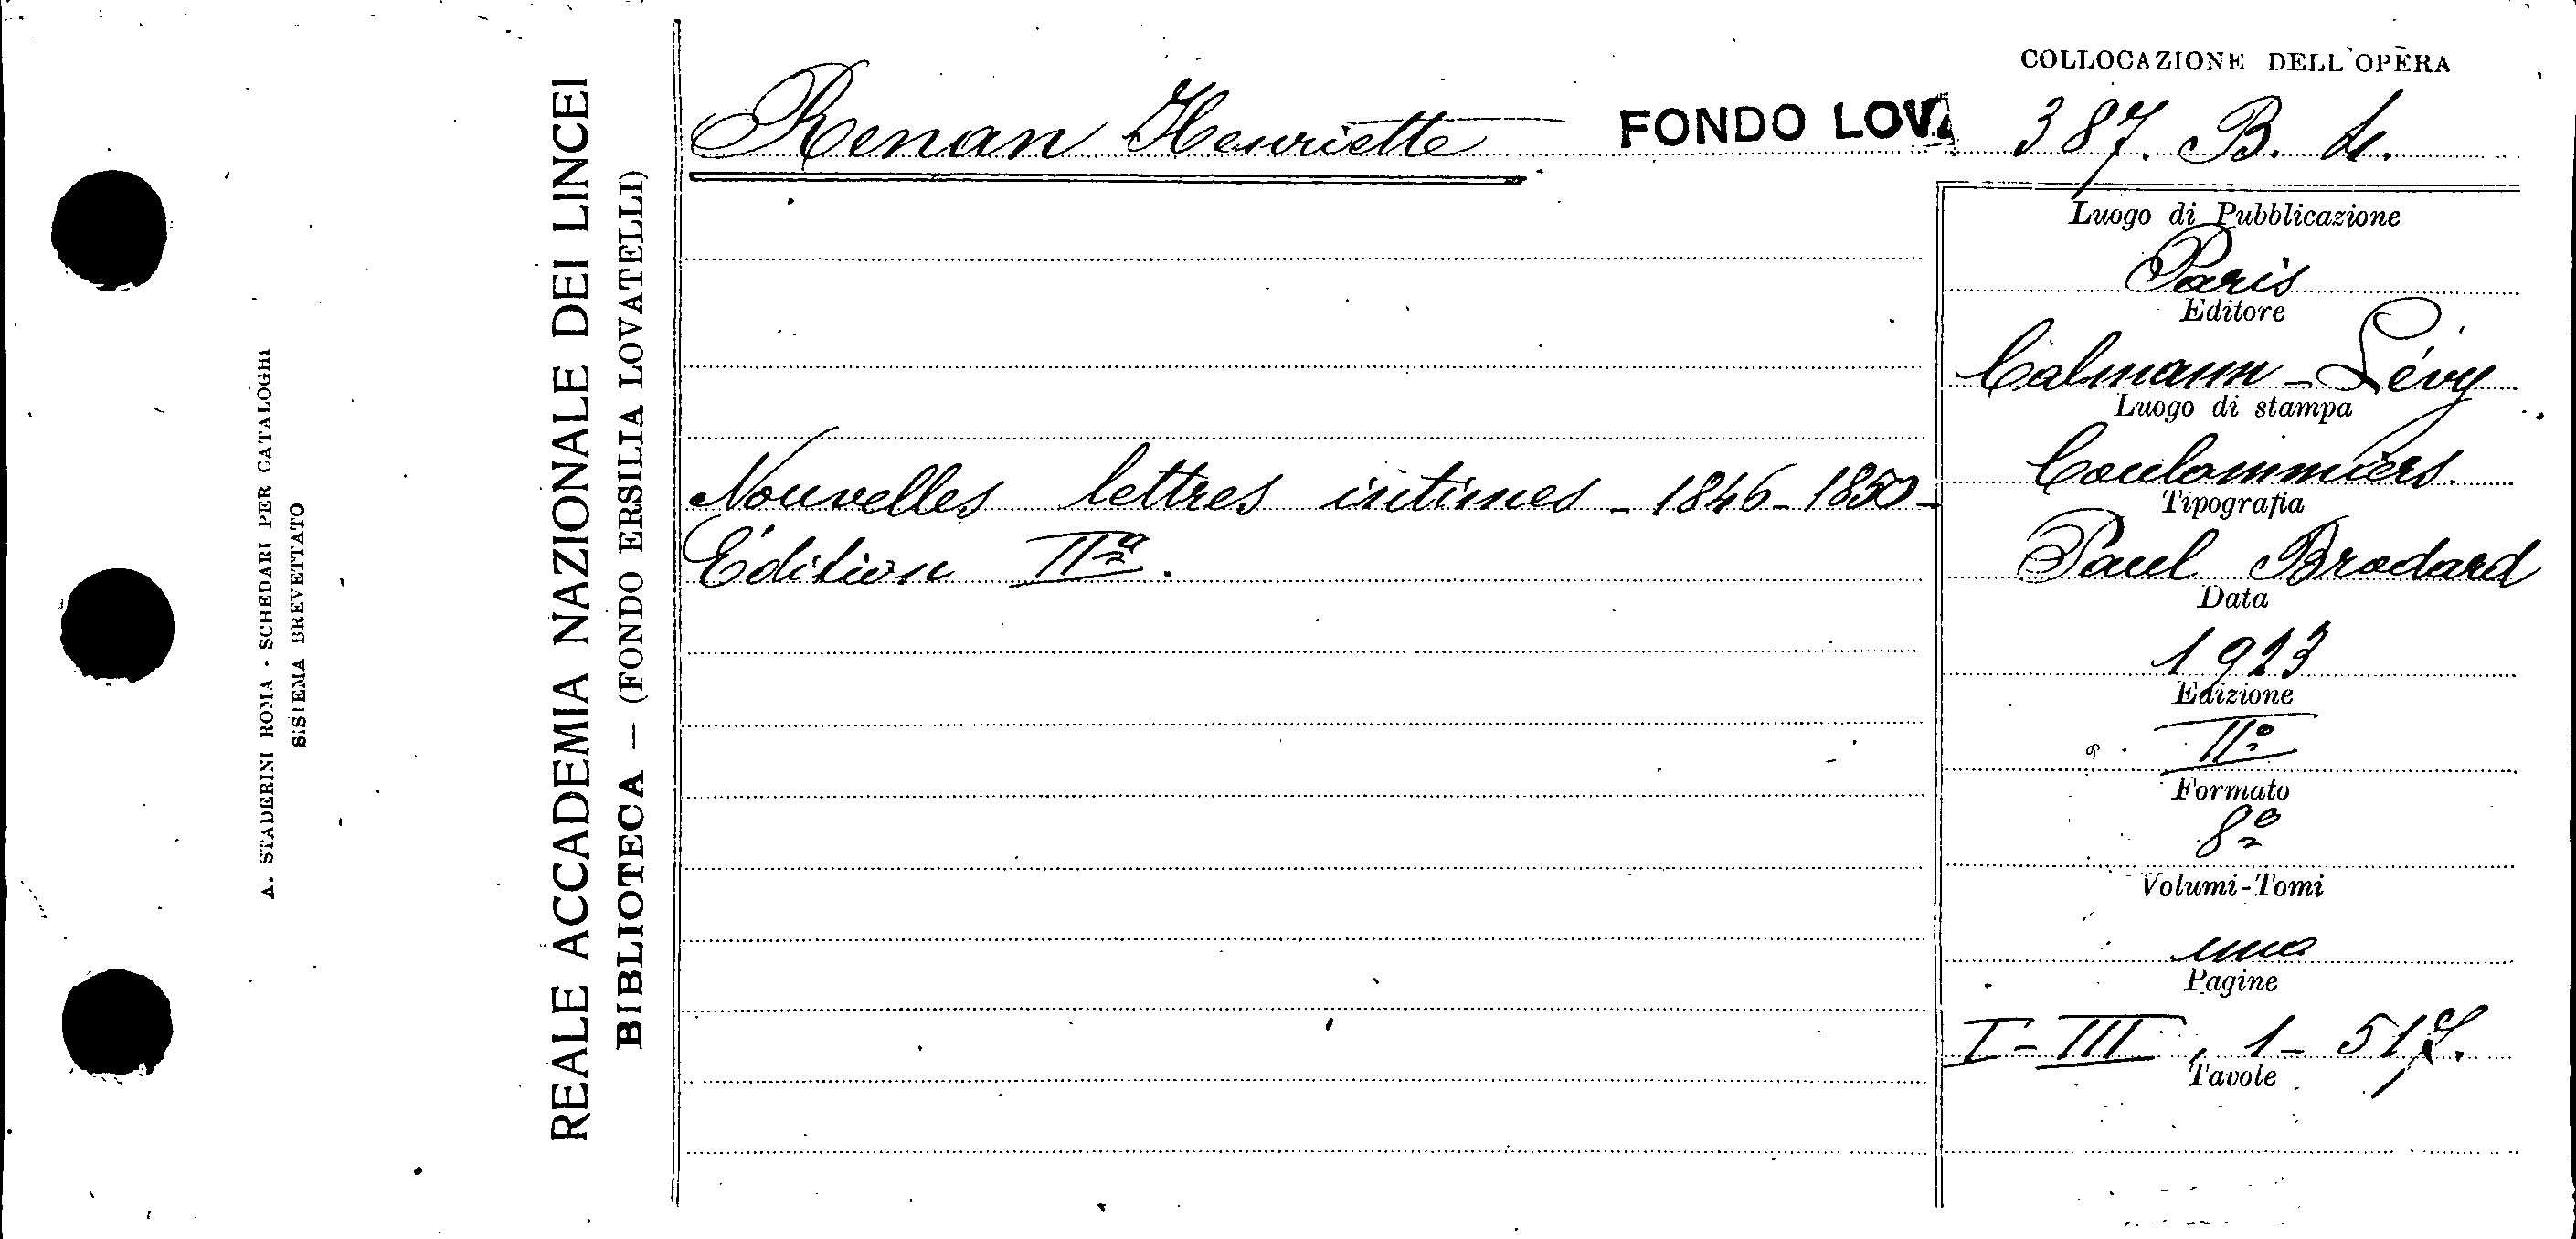 A. STADERINI ROMA - SCHEDARI PER CATALOGHI
SISTEMA BREVETTATO
REALE ACCADEMIA NAZIONALE DEI LINCEI
BIBLIOTECA — (FONDO ERSILIA LOVATELLI)
Renan Henriette
FONDO LOVA
COLLOCAZIONE DELL'OPERA
387. B. 4.
Nouvelles lettres intimes - 1846-1850-
Édition IIª.
Luogo di Pubblicazione
Paris
Editore
Calmann-Lévy
Luogo di stampa
Coulommiers.
Tipografia
Paul Brodard
Data
1923
Edizione
IIª
Formato
8º
Volumi-Tomi
uno
Pagine
I-III, 1-517.
Tavole